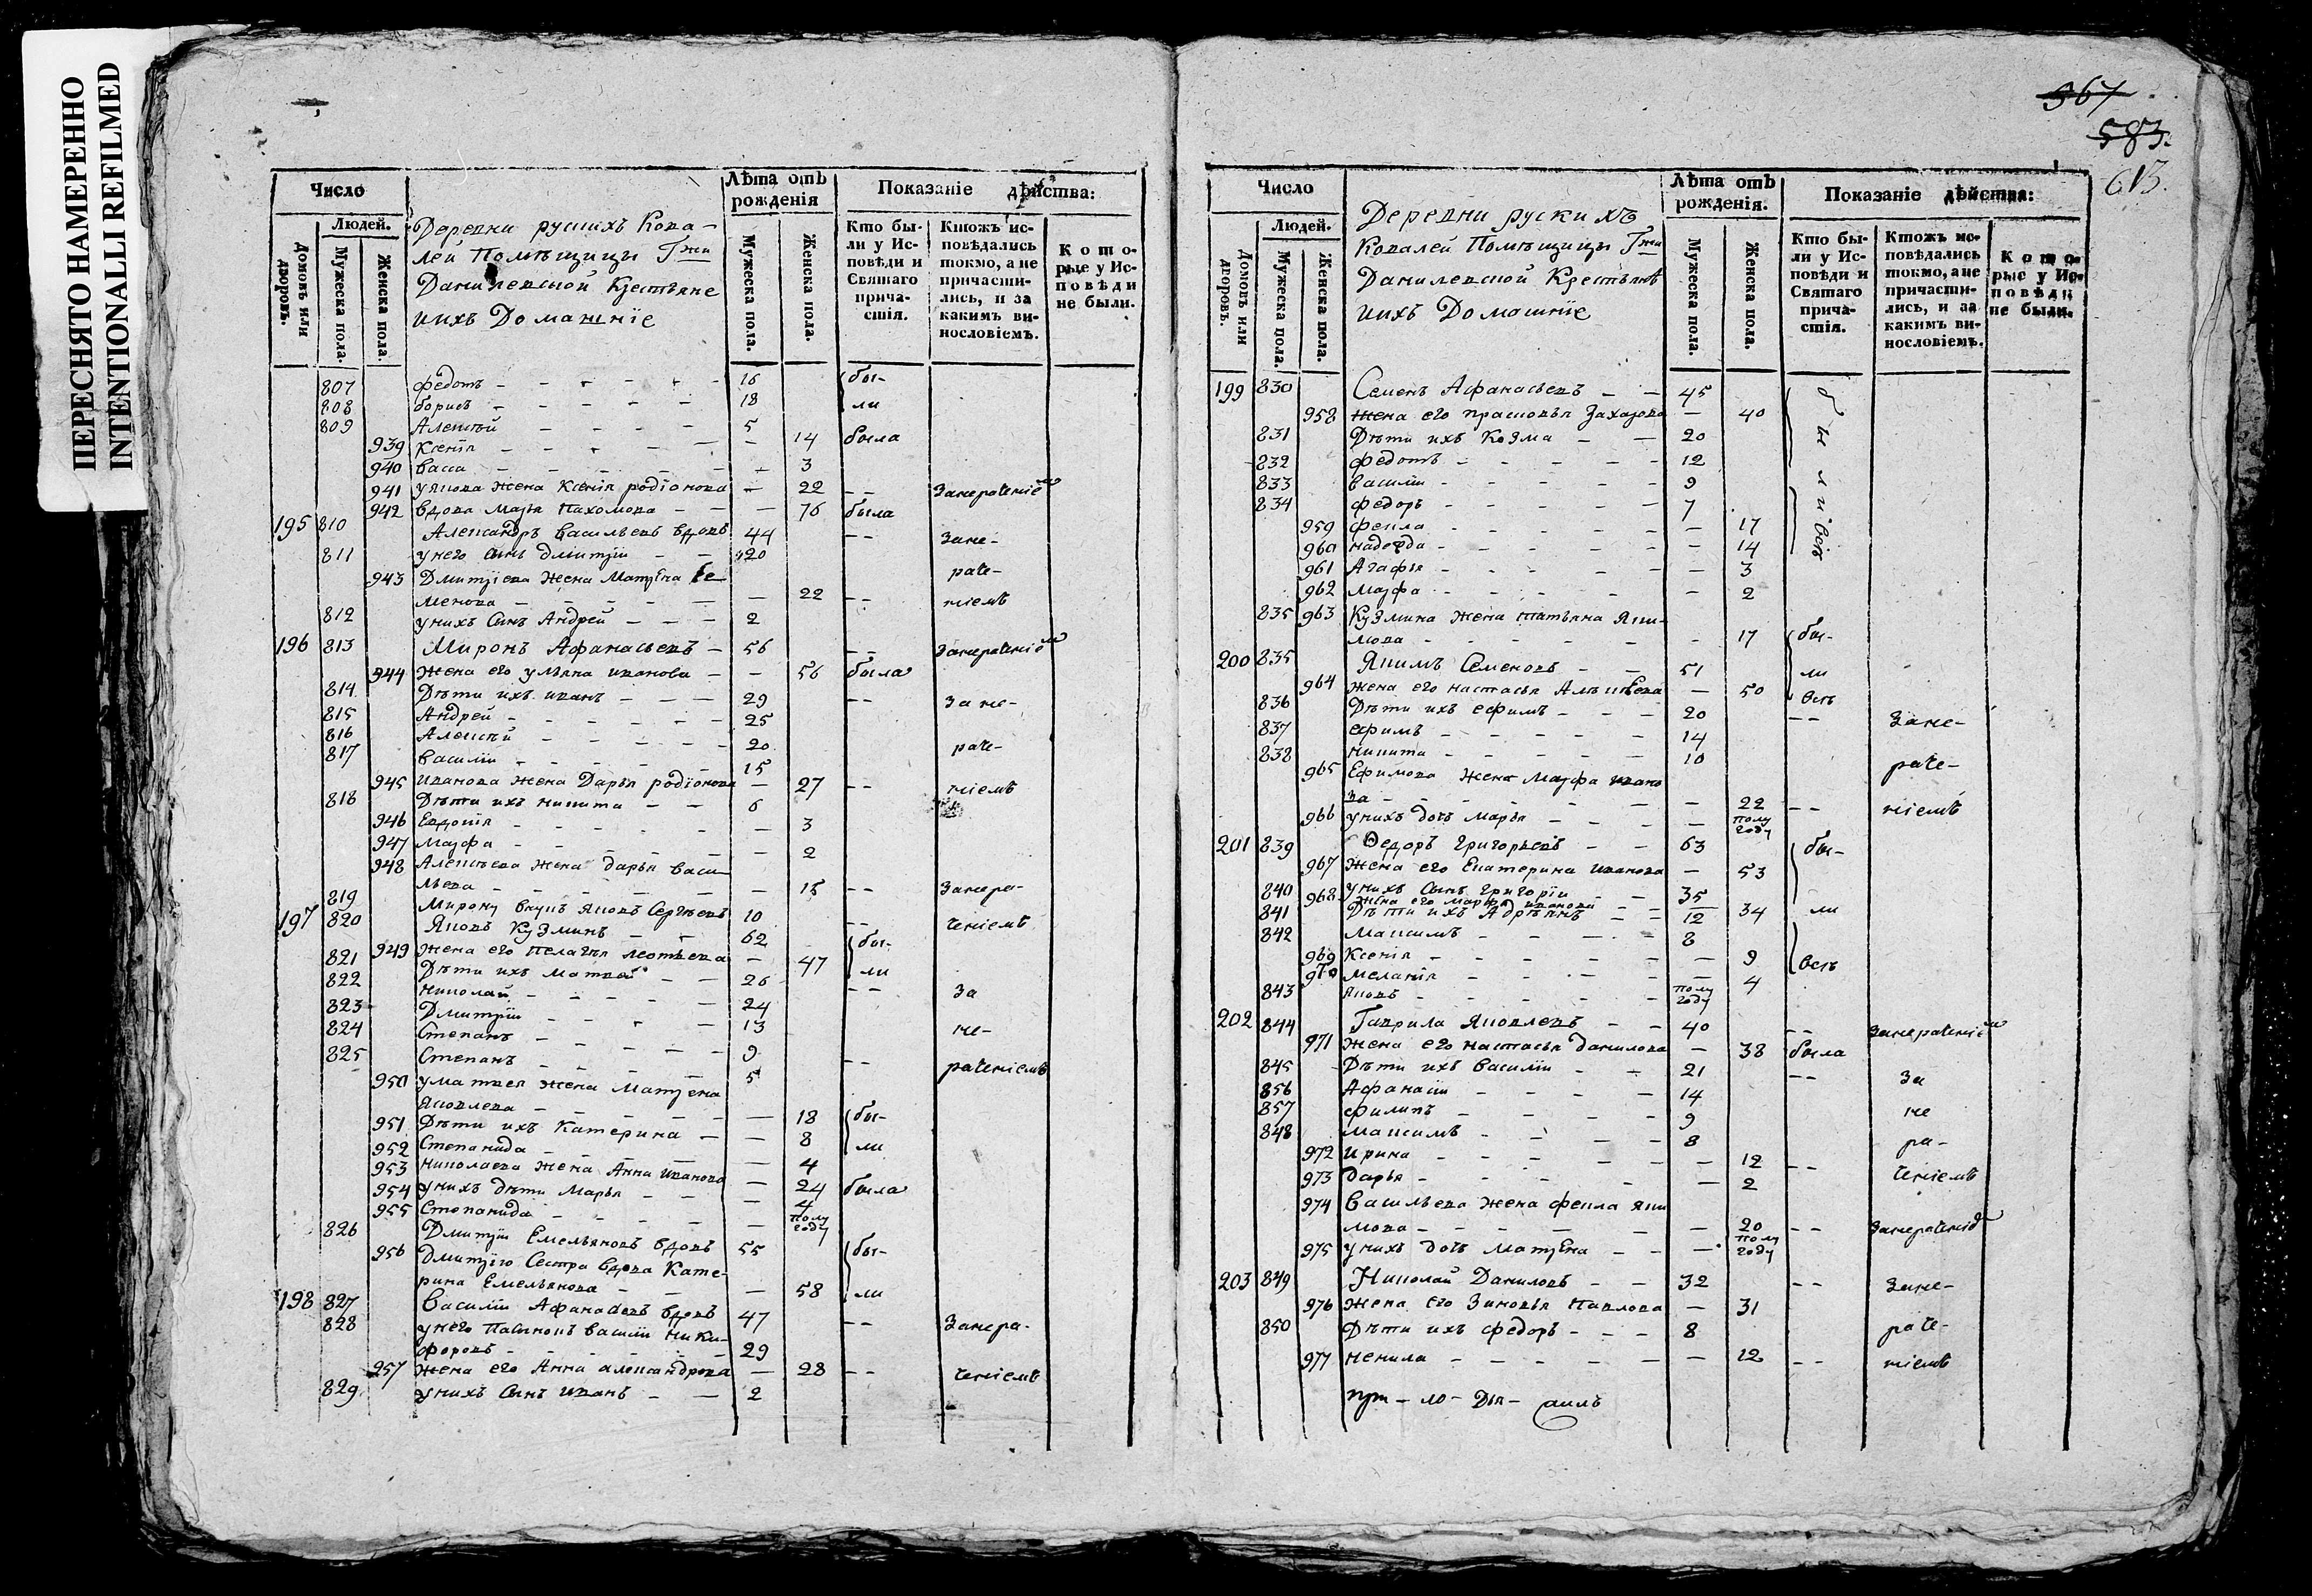 ПЕРЕСНЯТО НАМЕРЕННО
INTENTIONALLI REFILMED
Число
Людей.
Домовъ или дворовъ.
Мужеска пола.
Женска пола.
Деревни руских Кова-
лей Помѣщицы Гжи
Данилевской Крестьяне
иихъ Домашніе
Лѣта отъ рожденія
Мужеска пола.
Женска пола.
Показаніе дѣйства:
Кто бы-
ли у Ис-
повѣди и
Святаго
прича-
стія.
Ктожъ ис-
повѣдались
токмо, а не
причасти-
лись, и за
какимъ ви-
нословіемъ.
Кото-
рые у Ис-
повѣди
не были.
807 федотъ 16 бы-
808 борисъ 18 ли
809 Алексѣй 5
939 Ксенія 14 была
940 васса 3
941 Якова жена Ксенія родіонова 22 занераченіемъ
942 вдова Марья Пахомова 76 была
195 810 Александръ васильевъ вдовъ 44 Зане-
811 унего сынъ дмитрiи 20
943 Дмитріева жена Матрена Се раче-
менова 22 ніемъ
812 унихъ Сынъ Андрей 2
196 813 Миронъ Афанасьевъ 56 Занераченіемъ
944 жена его ульяна иванова 56 была
814 Дѣти ихъ иванъ 29 Зане-
815 Андрей 25
816 Алексѣй 20 раче-
817 василiи 15
945 иванова жена Дарья родіонова 27 ніемъ
818 Дѣти ихъ никита 6
946 Евдокія 3
947 Марфа 2
948 Алексѣева жена дарья васи-
льева 15 Занера-
819 Мирону внукъ Яковъ Сергѣевъ 10 ченіемъ
197 820 Яковъ Кузминъ 62 бы-
949 жена его пелагѣя леонтьева 47 ли
821 Дѣти ихъ матвей 26
822 николай 24 За
823 Дмитрiи 13 не-
824 Степанъ 9
825 Степанъ 5 раченіемъ
950 уматвея жена Матрена
Яковлева 18 бы-
951 Дѣти ихъ Катерина 8 ли
952 Степанида 4
953 николаева жена Анна иванова 24 была
954 унихъ дѣти Марья 4
955 Степанида полу году
826 Дмитрiи Емельяновъ вдовъ 55 бы-
956 Дмитрію Сестра вдова Кате-
рина Емельянова 58 ли
198 827 василiи Афанасьевъ вдовъ 47
828 унего пасынокъ василiи Ники- Занера-
форовъ 29
957 жена его Анна александрова 28 ченіемъ
829 унихъ Сынъ иванъ 2
567
583.
613.
Число
Людей.
Домовъ или дворовъ.
Мужеска пола.
Женска пола.
Деревни рускихъ
Ковалей Помѣщицы Гжи
Данилевской Крестьянѣ
иихъ Домашніе
Лѣта отъ рожденія.
Мужеска пола.
Женска пола.
Показаніе дѣйства:
Кто бы-
ли у Ис-
повѣди и
Святаго
прича-
стія.
Ктожъ ис-
повѣдались
токмо, а не
причасти-
лись, и за
какимъ ви-
нословіемъ.
Кото-
рые у Ис-
повѣди
не были.
199 830 Семенъ Афанасьевъ 45 были всѣ
958 жена его прасковья Захарова 40
831 Дѣти ихъ Козма 20
832 федотъ 12
833 василiи 9
834 федоръ 7
959 фекла 17
960 надежда 14
961 Агафья 3
962 Марфа 2
835 963 Кузмина жена татьяна Яки-
мова 17 бы-
200 835 Якимъ Семеновъ 51 ли
964 жена его настасья Алексѣева 50 всѣ
836 Дѣти ихъ ефимъ 20 Зане-
837 ефимъ 14
838 никита 10 раче-
965 Ефимова жена Марфа ивано
ва 22 ніемъ
966 унихъ дочь марья полу году
201 839 Ѳедоръ григорьевъ 63 бы-
967 жена его Екатерина иванова 53
840 унихъ сынъ григорiи 35
968 жена его Марья иванова 34 ли
841 Дѣти ихъ Адрѣянъ 12
842 Максимъ 8
969 Ксенія 9 всѣ
970 меланія 4
843 яковъ полу году
202 844 Гаврила Яковлевъ 40 Занераченіемъ
971 жена его настасья данилова 38 была
845 Дѣти ихъ василiи 21 За
856 Афанасiи 14
857 филипъ 9 не
848 максимъ 8 ра-
972 ирина 12
973 дарья 2 ченіемъ
974 васильева жена фекла яки
мова 20 Занераченіемъ
975 унихъ дочь матрена полу году
203 849 Николай Даниловъ 32 Зане-
976 жена его Зиновья павлова 31
850 Дѣти ихъ федоръ 8 раче-
977 ненила 12 ніемъ